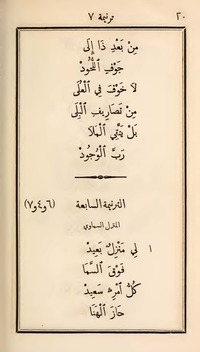 ٢٠ ترنيمة ٧
مِنْ بَعْدِ ذَا إِلَى
جَوْفِ ٱللُّحُودْ
لاَ خَوْفَ فِي ٱلْعُلَى
مِنْ تَصَارِيفِ ٱلْبِلَى
بَلْ يَتَّقِي ٱلْمَلاَ
رَبَّ ٱلْوُجُودْ
الترنيمة السابعة (٦و٤و٧)
المنزل السماوي
١ لِي مَنْزِلٌ بَعِيدْ
فَوْقَ ٱلسَّمَا
كُلُّ ٱمْرِءٍ سَعِيدْ
حَازَ ٱلْهَنَا